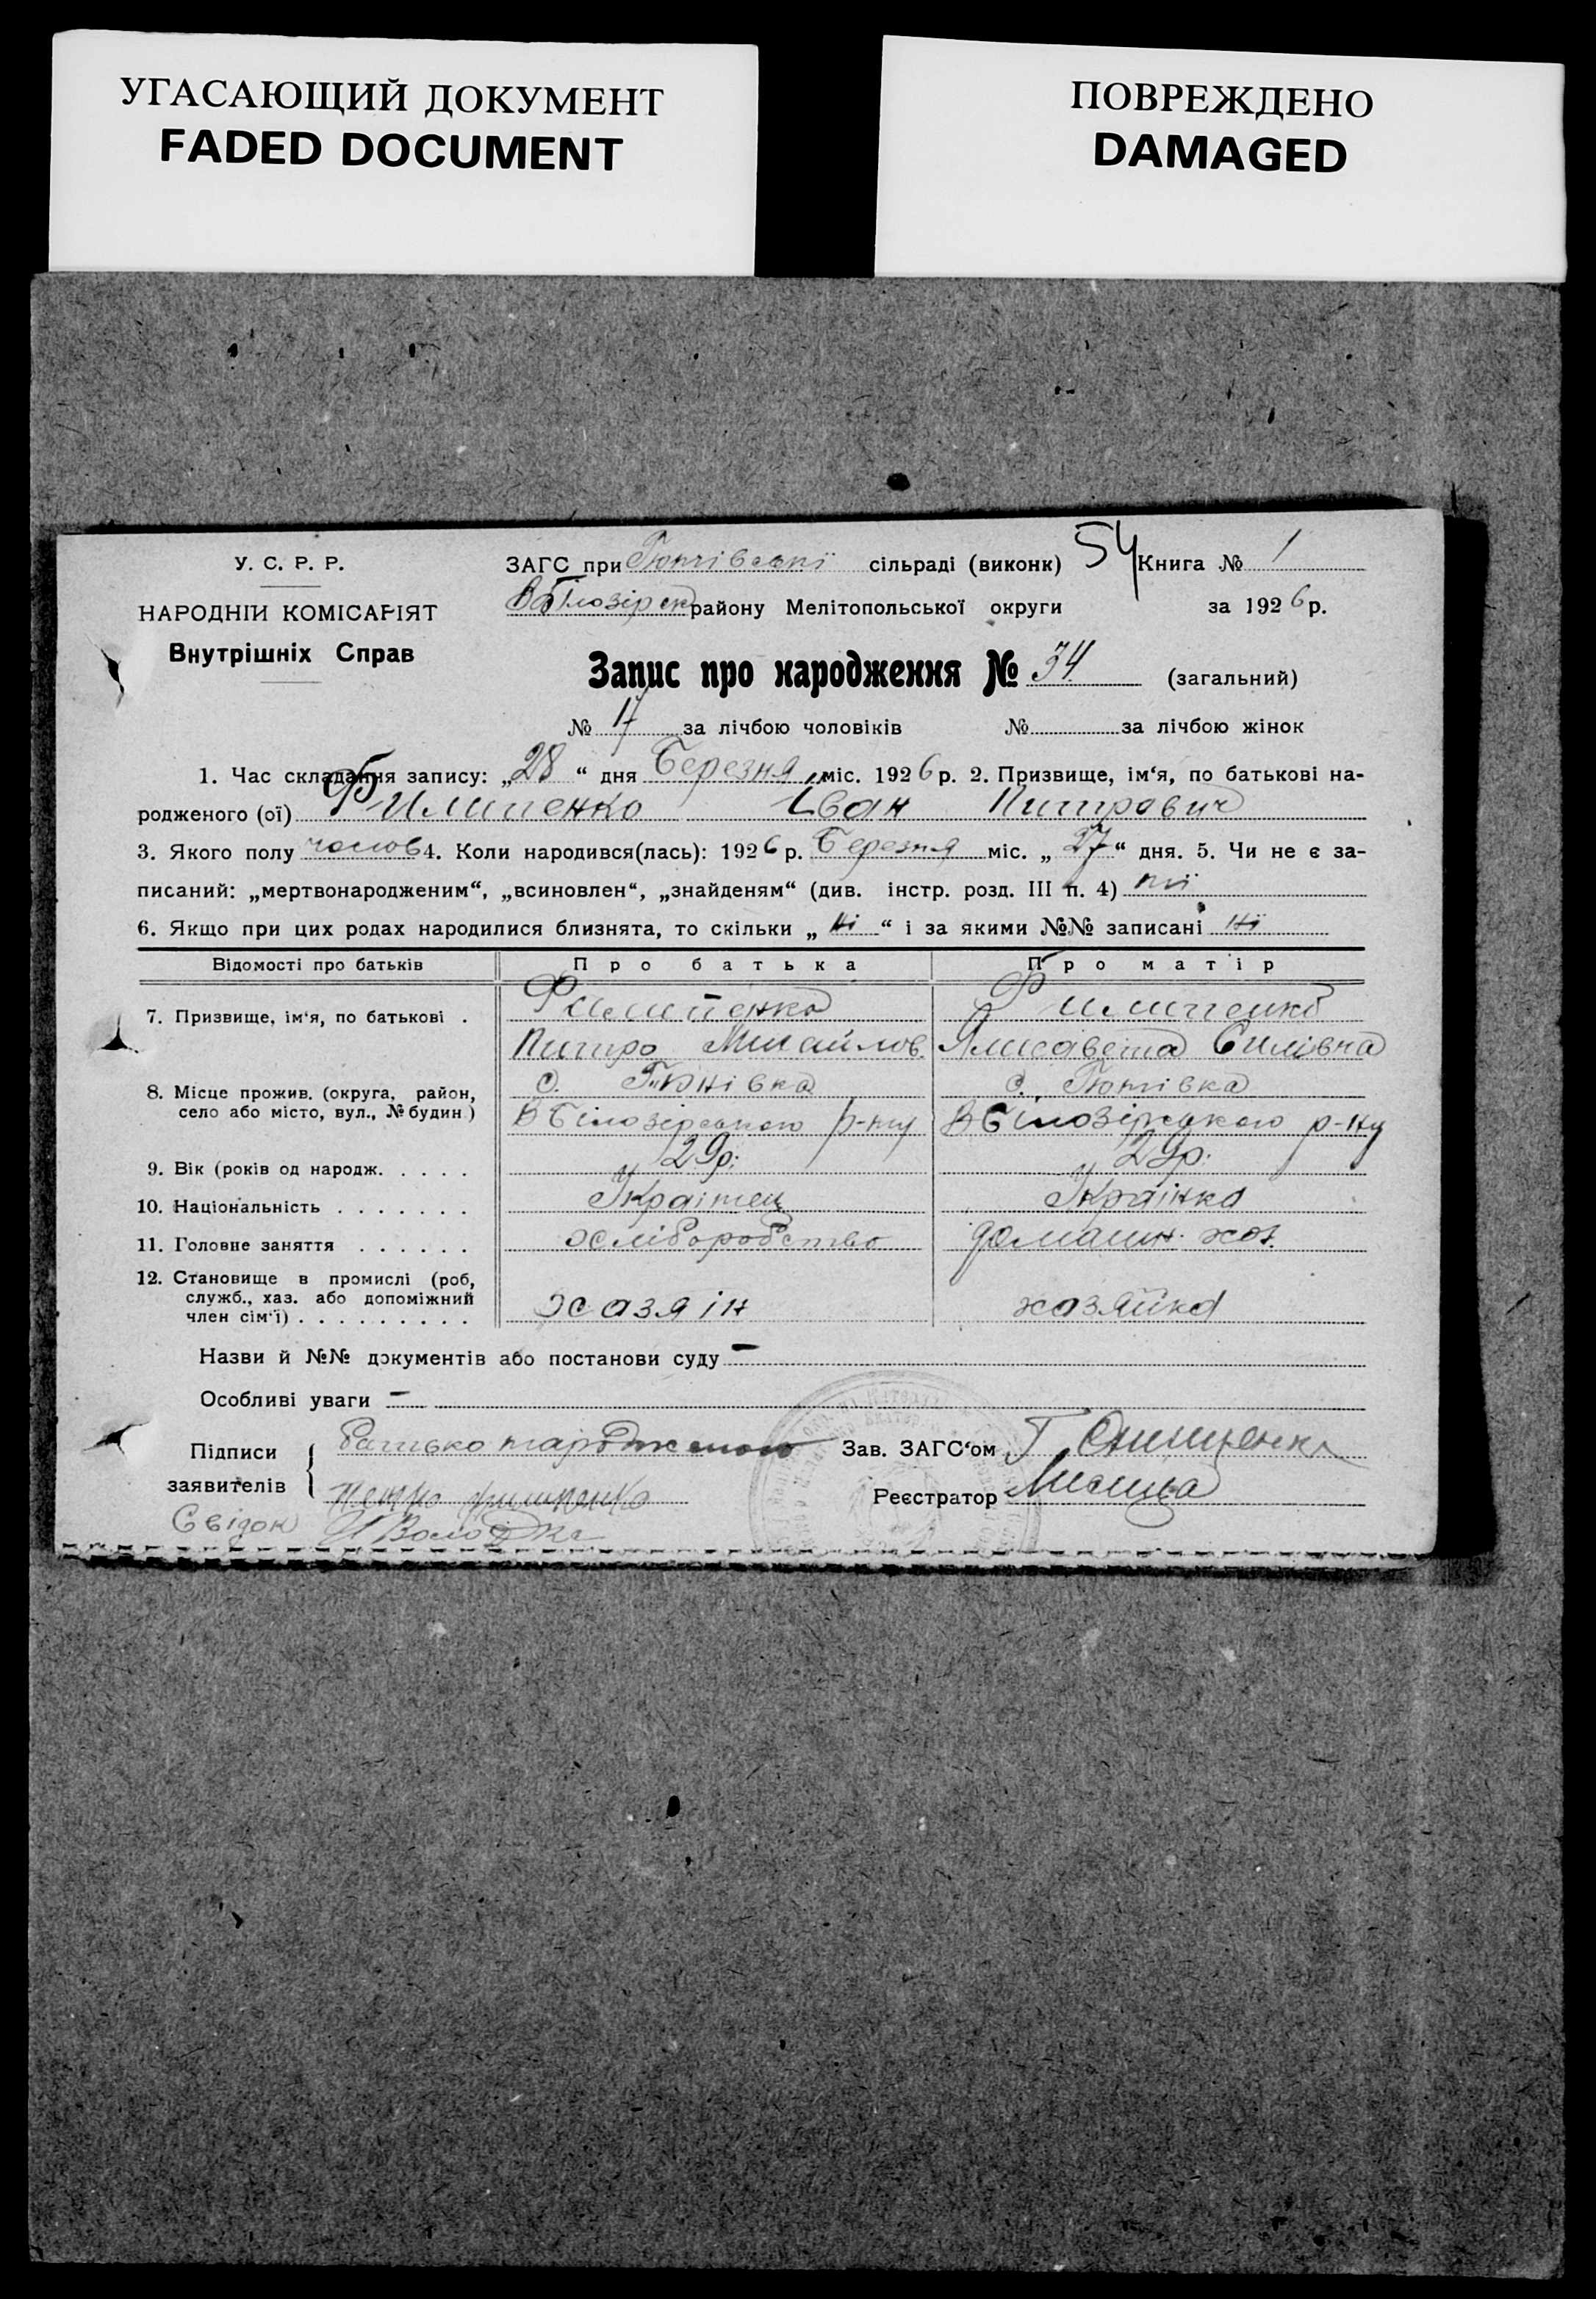 УГАСАЮЩИЙ ДОКУМЕНТ
FADED DOCUMENT
ПОВРЕЖДЕНО
DAMAGED
У. С. Р. Р.
НАРОДНІЙ КОМІСАРІЯТ
Внутрішніх Справ
ЗАГС при Гюнівській сільраді (виконк) 54 Книга № 1
В Білозірськ району Мелітопольської округи за 1926 р.
Запис про народження № 34 (загальний)
№ 17 за лічбою чоловіків № за лічбою жінок
1. Час складання запису: „28“ дня Березня міс. 1926 р. 2. Призвище, ім‘я, по батькові на-
родженого (ої) Филипенко Іван Питрович
3. Якого полу чолов 4. Коли народився(лась): 1926 р. Березня міс. „27“ дня. 5. Чи не є за-
писаний: „мертвонародженим“, „всиновлен“, „знайденям“ (див. інстр. розд. III п. 4) ні
6. Якщо при цих родах народилися близнята, то скільки „ні“ і за якими №№ записані ні
Відомості про батьків Про батька Про матір
7. Призвище, ім‘я, по батькові . Филипенко Филипенко
Питро Михайлов. Ялисавета Силівна
8. Місце прожив. (округа, район, с. Гюнівка с. Гюнівка
село або місто, вул., № будин) В Білозірського р-ну В Білозірського р-ну
9. Вік (років од народж. . . . . 29 р. 29 р.
10. Національність . . . . . . . Українец Українка
11. Головне заняття . . . . . . хліборобство домашн. хоз.
12. Становище в промислі (роб,
служб., хаз. або допоміжний
член сім‘ї) . . . . . . . . . хазяін хозяйка
Назви й №№ документів або постанови суду —
Особливі уваги —
Підписи
заявителів
батько народженого
петро филипенко
Свідок
Зав. ЗАГС‘ом Г. Онищенко
Реєстратор